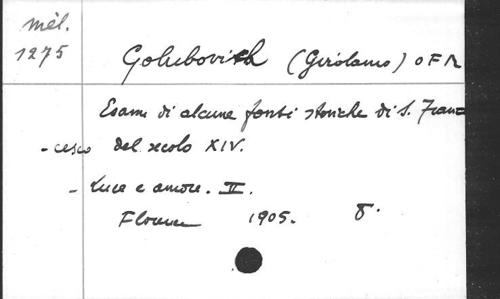 mél.
1275
Golubovich (Girolamo) OFM
Esame di alcune fonti storiche di S. Fran=
- cesco del secolo XIV.
- Luce e amore. II.
Florence 1905. 8°.